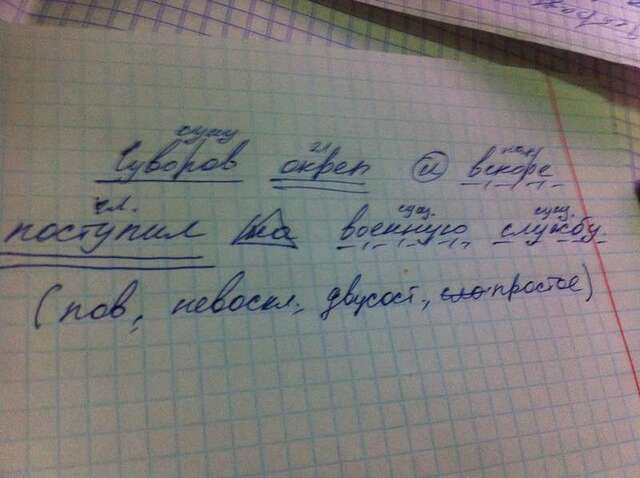 сущ. гл. нар.
Суворов окреп и вскоре
гл. сущ. сущ.
поступил на военную службу.
(пов., невоскл., двусост., простое)